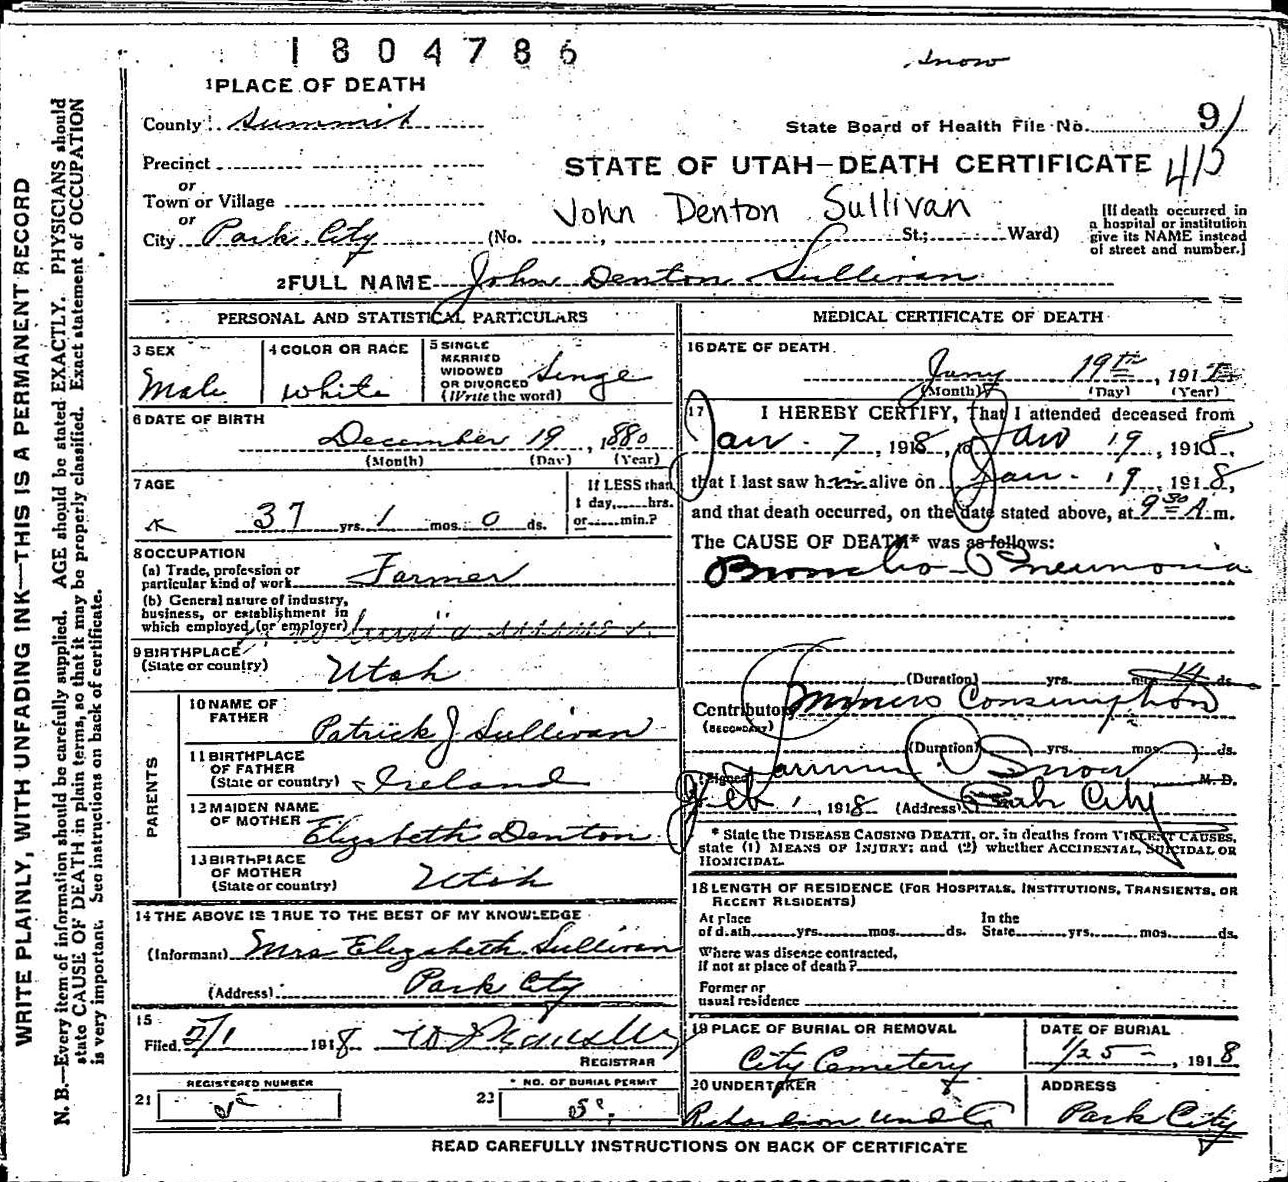 1804786
Snow
1 PLACE OF DEATH
County Summit
State Board of Health File No. 91
Precinct
STATE OF UTAH—DEATH CERTIFICATE 415
or
Town or Village
John Denton Sullivan
or
City Park City (No. , St.; Ward)
[If death occurred in
a hospital or institution
give its NAME instead
of street and number.]
2 FULL NAME John Denton Sullivan
PERSONAL AND STATISTICAL PARTICULARS
3 SEX
Male
4 COLOR OR RACE
White
5 SINGLE
MARRIED
WIDOWED
OR DIVORCED
(Write the word)
Singe
6 DATE OF BIRTH
December 19, 1880
(Month) (Day) (Year)
7 AGE
37 yrs. 1 mos. 0 ds.
If LESS than
1 day, hrs.
or min.?
8 OCCUPATION
(a) Trade, profession or
particular kind of work Farmer
(b) General nature of industry,
business, or establishment in
which employed (or employer)
9 BIRTHPLACE
(State or country) Utah
PARENTS
10 NAME OF
FATHER
Patrick J Sullivan
11 BIRTHPLACE
OF FATHER
(State or country) Ireland
12 MAIDEN NAME
OF MOTHER
Elizabeth Denton
13 BIRTHPLACE
OF MOTHER
(State or country) Utah
14 THE ABOVE IS TRUE TO THE BEST OF MY KNOWLEDGE
(Informant) Mrs Elizabeth Sullivan
(Address) Park City
15
Filed 2/1 1918
REGISTRAR
REGISTERED NUMBER
21
NO. OF BURIAL PERMIT
23
MEDICAL CERTIFICATE OF DEATH
16 DATE OF DEATH
Jany 19th, 191
(Month) (Day) (Year)
17 I HEREBY CERTIFY, That I attended deceased from
Jan - 7, 1918, to Jan 19, 1918,
that I last saw him alive on Jan - 19, 1918,
and that death occurred, on the date stated above, at 9 30 A m.
The CAUSE OF DEATH* was as follows:
Broncho-Pneumonia
(Duration) yrs. mos. 14 ds.
Contributory Miners Consumption
(SECONDARY)
(Duration) yrs. mos. ds.
(Signed) Snow M. D.
Feb 1, 1918 (Address) Park City
* State the DISEASE CAUSING DEATH, or, in deaths from VIOLENT CAUSES,
state (1) MEANS OF INJURY; and (2) whether ACCIDENTAL, SUICIDAL OR
HOMICIDAL.
18 LENGTH OF RESIDENCE (FOR HOSPITALS, INSTITUTIONS, TRANSIENTS, OR
RECENT RESIDENTS)
At place
of death yrs. mos. ds.
In the
State yrs. mos. ds.
Where was disease contracted,
if not at place of death?
Former or
usual residence
19 PLACE OF BURIAL OR REMOVAL
City Cemetery
DATE OF BURIAL
1/25 -, 1918
20 UNDERTAKER
Richardson und Co
ADDRESS
Park City
READ CAREFULLY INSTRUCTIONS ON BACK OF CERTIFICATE
WRITE PLAINLY, WITH UNFADING INK—THIS IS A PERMANENT RECORD
N. B.—Every item of information should be carefully supplied. AGE should be stated EXACTLY. PHYSICIANS should
state CAUSE OF DEATH in plain terms, so that it may be properly classified. Exact statement of OCCUPATION
is very important. See instructions on back of certificate.